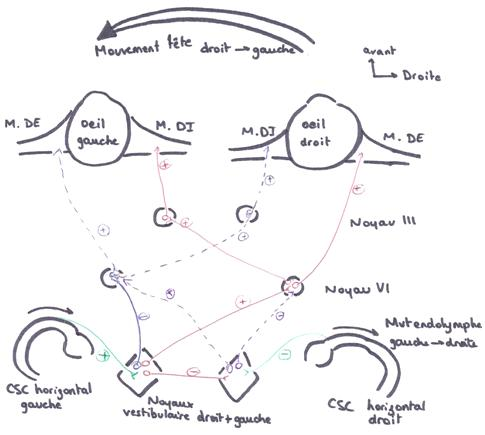 Mouvement tête droit → gauche
avant
Droite
M. DE
oeil
gauche
M. DI
M.DI
oeil
droit
M. DE
+
+
+
+
+
+
Noyau III
Noyau VI
-
+
+
-
Mvt endolymphe
gauche → droite
+
-
-
CSC horizontal
gauche
Noyaux
vestibulaire droit + gauche
CSC horizontal
droit